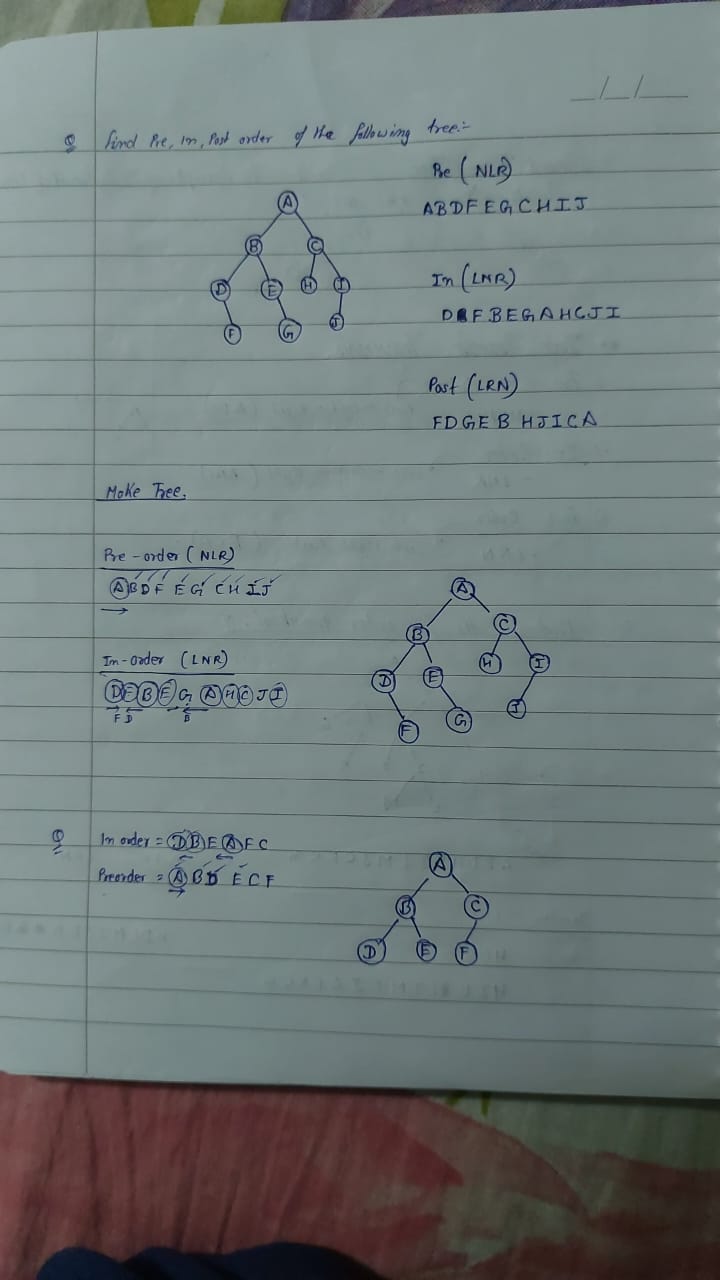 _/_/_
Q Find Pre, In, Post order of the following tree:-
Pre (NLR)
ABDFEGCHIJ
A
B C
D E H I
F G J
In (LNR)
DFBEGAHCJI
Post (LRN)
FDGEB HJICA
Make Tree.
Pre-order (NLR)
ABDF EG CH IJ
In-order (LNR)
DFBEG AHCJI
F D B
A
B C
D E H I
F G J
Q In order = DBEAFC
Preorder = ABD ECF
A
B C
D E F